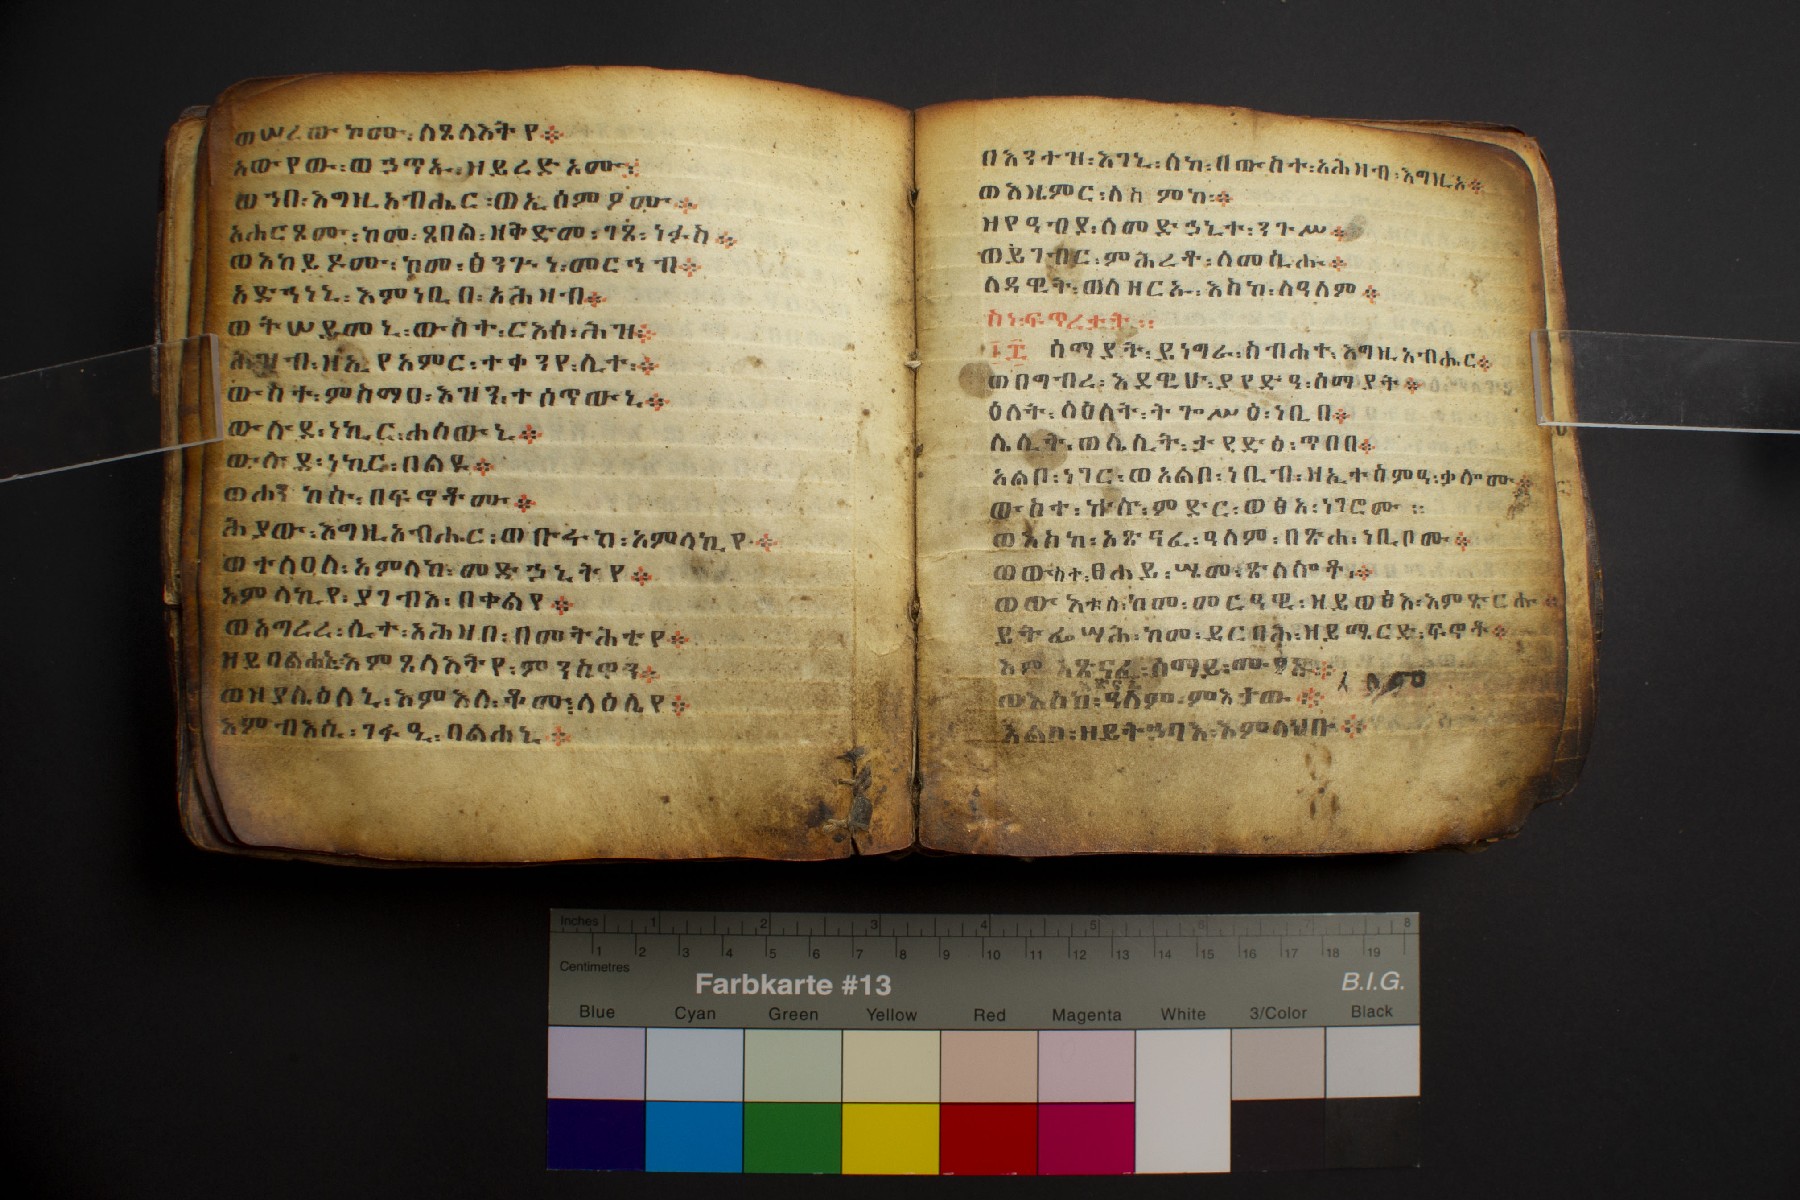 ወሠረውኮሙ፡ለጸላእትየ፨
አውየው፡ወኃጥኡ፡ዘይረድኦሙ፨
ወኀበ፡እግዚአብሔር፡ወኢሰምዖሙ፨
አሐርጾሙ፡ከመ፡ጸበል፡ዘቅድመ፡ገጸ፡ነፋስ፨
ወእከይዶሙ፡ከመ፡ፅንጉነ፡መርኅብ፨
አድኅነኒ፡እምነቢበ፡አሕዛብ፨
ወትሠይመኒ፡ውስተ፡ርእሰ፡ሕዝ፨
ሕዝብ፡ዘኢየአምር፡ተቀንየ፡ሊተ፨
ውስተ፡ምስማዐ፡እዝን፡ተሰጥውኒ፨
ውሉደ፡ነኪር፡ሐሰውኒ፨
ውሉደ፡ነኪር፡በልዩ፨
ወሐንከሱ፡በፍኖቶሙ፨
ሕያው፡እግዚአብሔር፡ወቡሩክ፡አምላኪየ፨
ወተለዐለ፡አምላከ፡መድኃኒትየ፨
አምላኪየ፡ያገብእ፡በቀልየ፨
ወአግረረ፡ሊተ፡አሕዛበ፡በመትሕቴየ፨
ዘይባልሐኒ፡እምጸላእትየ፡ምንስዋን፨
ወዝያሌዕለኒ፡እምእለ፡ቆሙ፡ላዕሌየ፨
እምብእሲ፡ገፋዒ፡ባልሐኒ፨
በእንተዝ፡እገኒ፡ለከ፡በውስተ፡አሕዛብ፡እግዚኦ፨
ወእዚምር፡ለስምከ፨
ዘየዓብያ፡ለመድኃኒተ፡ንጉሥ፨
ወይገብር፡ምሕረቶ፡ለመሲሑ፨
ለዳዊት፡ወለዘርኡ፡እስከ፡ለዓለም፨
ስነ፡ፍጥረታት፡፡
፲፰ ሰማያት፡ይነግራ፡ስብሐተ፡እግዚአብሔር፨
ወበግብረ፡እደዊሁ፡ያየድዓ፡ሰማያት፨
ዕለት፡ለዕለት፡ትጐሥዕ፡ነቢበ፨
ሌሊት፡ወሌሊት፡ታየድዕ፡ጥበበ፨
አልቦ፡ነገር፡ወአልቦ፡ነቢብ፡ዘኢተሰምዓ፡ቃሎሙ፨
ውስተ፡ኵሉ፡ምድር፡ወፅአ፡ነገሮሙ፡፡
ወእስከ፡አጽናፈ፡ዓለም፡በጽሐ፡ነቢቦሙ፨
ወውስተ፡ፀሐይ፡ሤመ፡ጽላሎቶ፨
ወውእቱሰ፡ከመ፡መርዓዊ፡ዘይወፅእ፡እምጽርሑ፨
ይትፌሣሕ፡ከመ፡ያርበሕ፡ዘይሜርድ፡ፍኖቶ፨
እምአጽናፈ፡ሰማይ፡ሙፃኡ፨
ወእስከ፡ዓለም፡ምእታው፨
አልቦ፡ዘይትኃባእ፡እምላህቡ፨